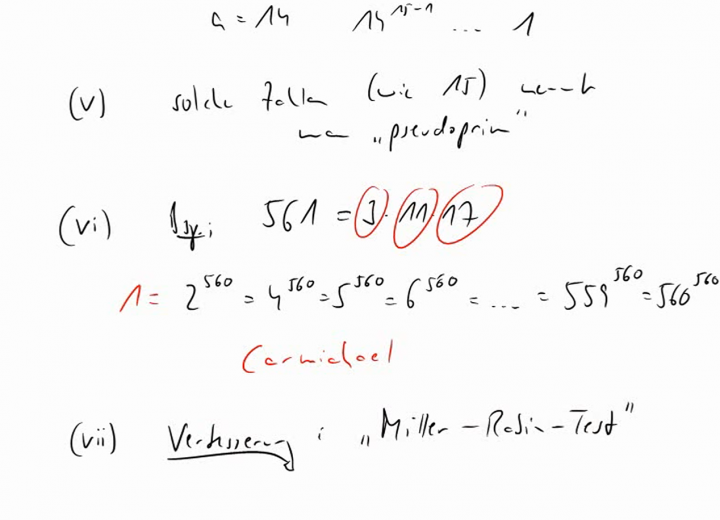 a = 14 14^15-1 ... 1
(v) solche Zahlen (wie 15) nennt
man „pseudoprim"
(vi) Bsp.: 561 = 3 · 11 · 17
1 = 2^560 = 4^560 = 5^560 = 6^560 = .... = 559^560 = 560^560
Carmichael
(vii) Verbesserung : „Miller-Rabin-Test"